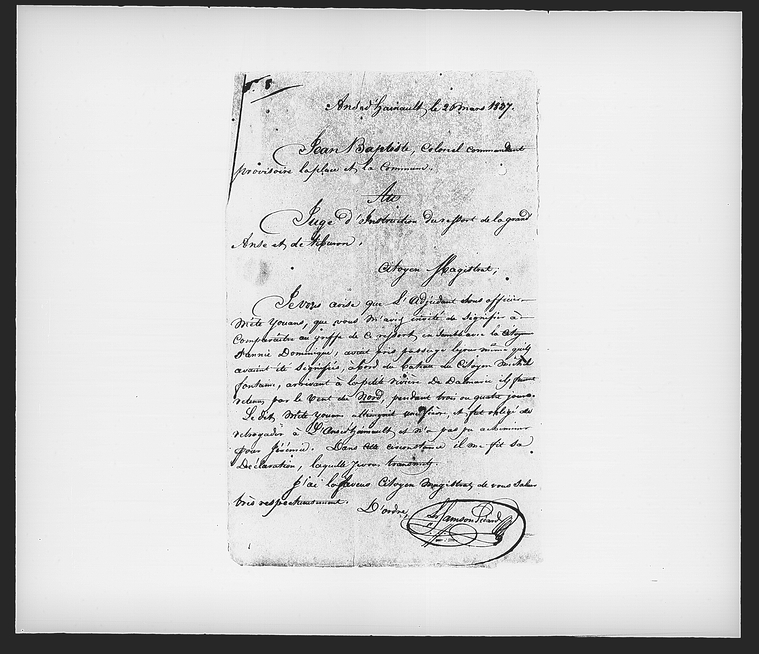 Anse d'hainault, le 26 mars 1837.
Jean Baptiste, Colonel commandant
provisoire la place et la Commune.
Au
Juge d'Instruction du ressort de la grand
Anse et de Tiburon.
Citoyen Magistrat,
Je vous avise que L'Adjudant sous officier
que vous m'aviez invité de signifier à
Comparaître au greffe de ce ressort, ensemble avec la citoyenne
Dominique, avait pris passage le jour même qu'ils
avaient été signifiés, à bord du bateau du Citoyen Michel
Fontaine, arrivant à la petite rivière De Dalmarie ils furent
retenus par le vent du Nord, pendant trois ou quatre jours.
Le dit et fut obligé de
rétrograder à L'Anse d'hainault et n'a pas pu acheminer
pour Jérémie. Dans cette circonstance il me fit sa
Déclaration, laquelle je vous transmets.
J'ai la faveur Citoyen Magistrat, de vous saluer
très respectueusement.
D'ordre,
Samson Picard